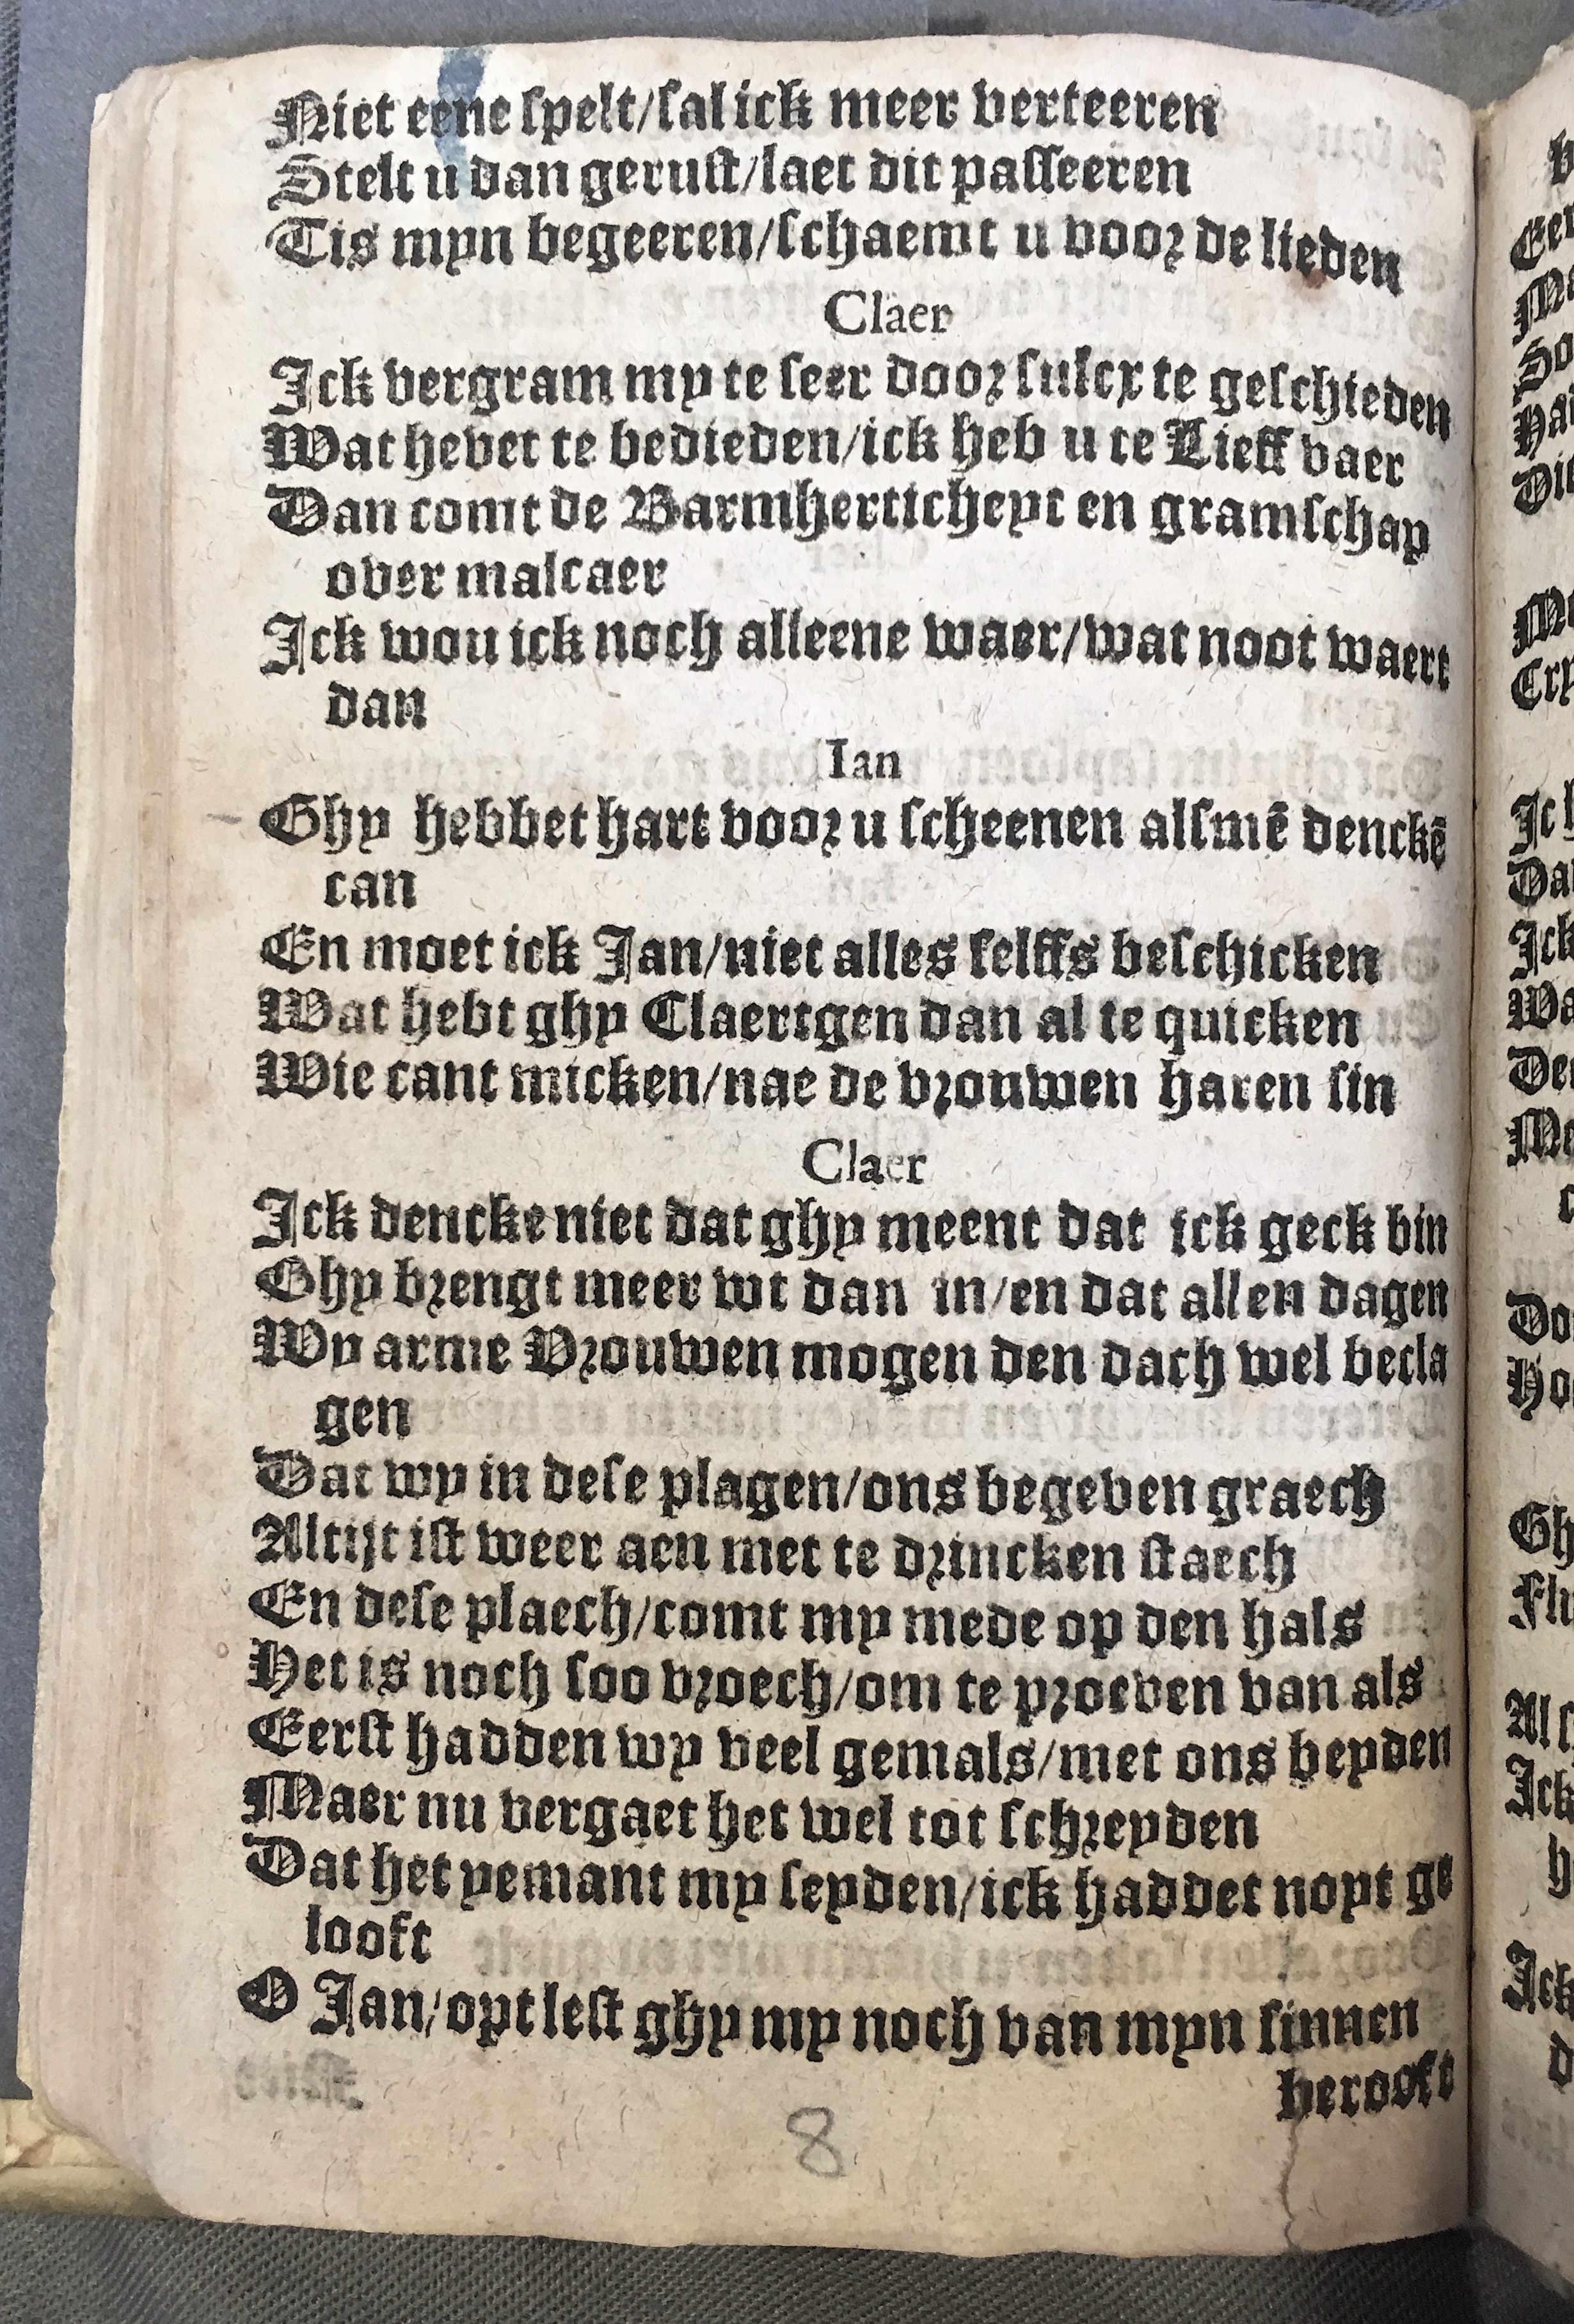 Niet eene spelt/sal ick meer verteeren
Stelt u dan gerust/laet dit passeeren
Tis myn begeeren/schaemt u voor de lieden
Claer
Ick vergram my te seer door sulcx te geschieden
Wat hevet te bedieden/ick heb u te Lieff vaer
Dan comt de Barmherticheyt en gramschap
over malcaer
Ick wou ick noch alleene waer/wat noot waert
dan
Ian
Ghy hebbet hart voor u scheenen alsmē denckē
can
En moet ick Jan/niet alles selffs beschicken
Wat hebt ghy Claertgen dan al te quicken
Wie cant micken/nae de vrouwen haren sin
Claer
Ick dencke niet dat ghy meent dat ick geck bin
Ghy brengt meer wt dan in/en dat allen dagen
Wy arme Vrouwen mogen den dach wel becla
gen
Dat wy in dese plagen/ons begeven graech
Altijt ist weer aen met te drincken staech
En dese plaech/comt my mede op den hals
Het is noch soo vroech/om te proeven van als
Eerst hadden wy veel gemals/met ons beyden
Maer nu vergaet het wel tot schreyden
Dat het yemant my seyden/ick haddet noyt ge
looft
O Jan/opt lest ghy my noch van myn sinnen
berooft
8